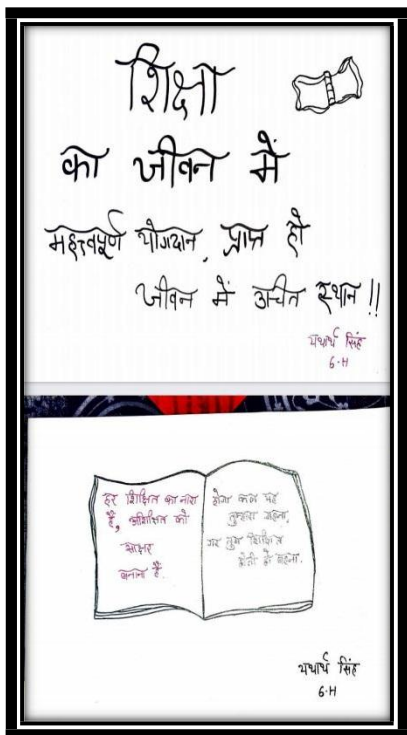 शिक्षा
का जीवन में
महत्त्वपूर्ण योगदान, प्राप्त हो
जीवन में उचित स्थान !!
यथार्थ सिंह
6-H
हर शिक्षित का नारा
है, अशिक्षित को
साक्षर
बनाना है.
होगा कल यह
तुम्हारा गहना,
गर तुम शिक्षित
बहना.
यथार्थ सिंह
6-H